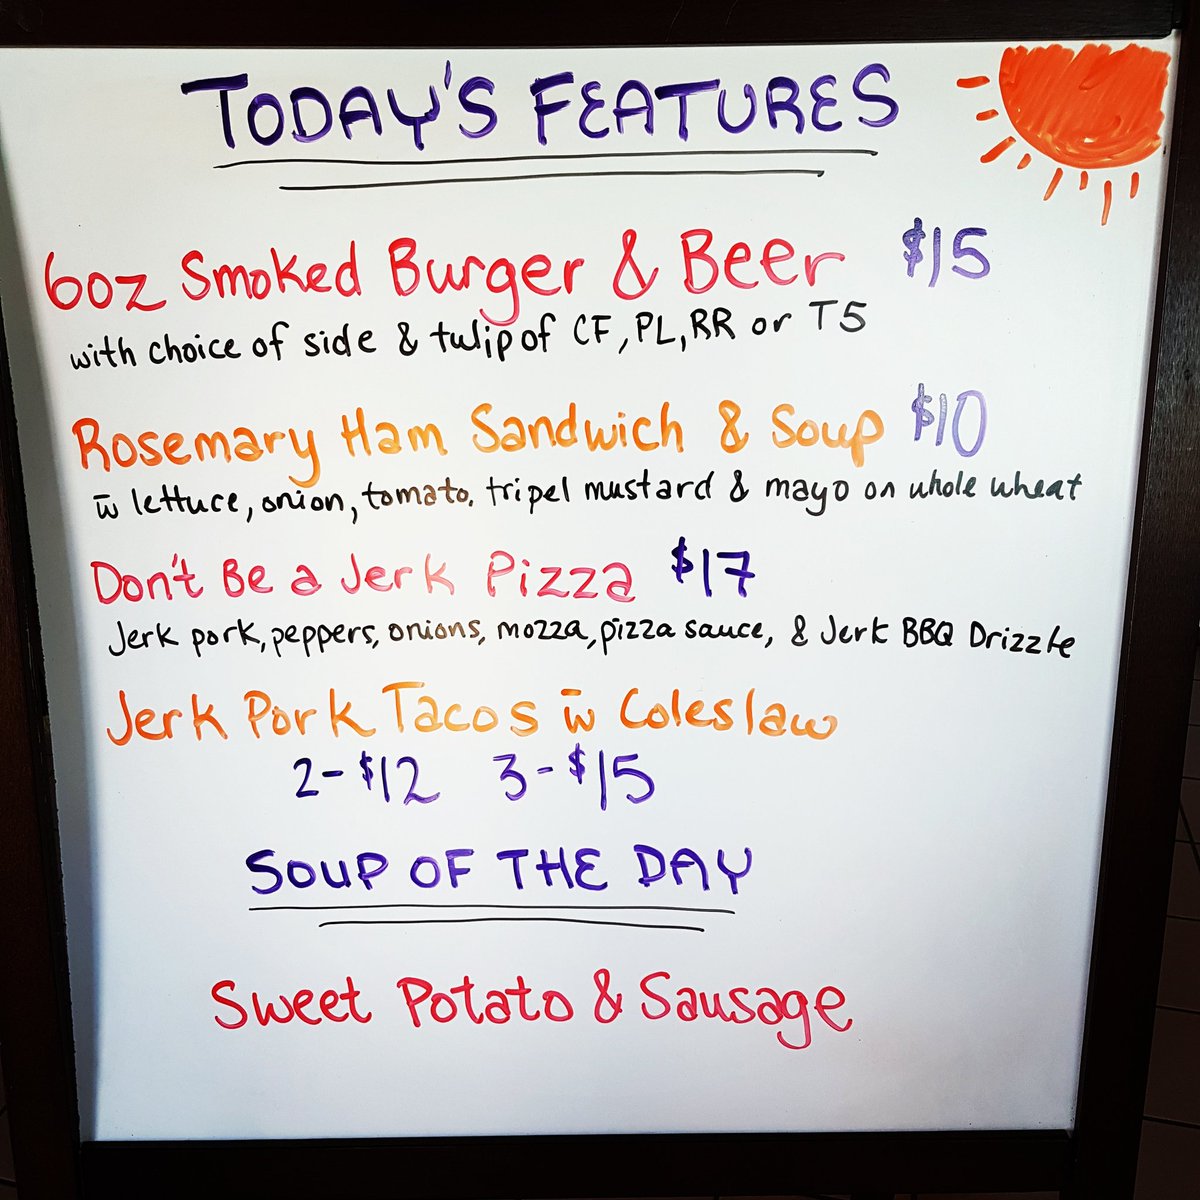 TODAY'S FEATURES
6oz Smoked Burger & Beer $15
with choice of side & tulip of CF, PL, RR or T5
Rosemary Ham Sandwich & Soup $10
w̄ lettuce, onion, tomato, tripel mustard & mayo on whole wheat
Don't Be a Jerk Pizza $17
Jerk pork, peppers, onions, mozza, pizza sauce, & Jerk BBQ Drizzle
Jerk Pork Tacos w̄ Coleslaw
2-$12 3-$15
SOUP OF THE DAY
Sweet Potato & Sausage